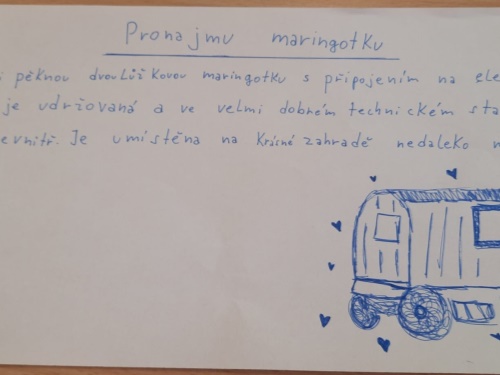 Pronajmu maringotku
pěknou dvoulůžkovou maringotku s připojením na
je udržovaná a ve velmi dobrém technickém
Je umístěna na krásné zahradě nedaleko